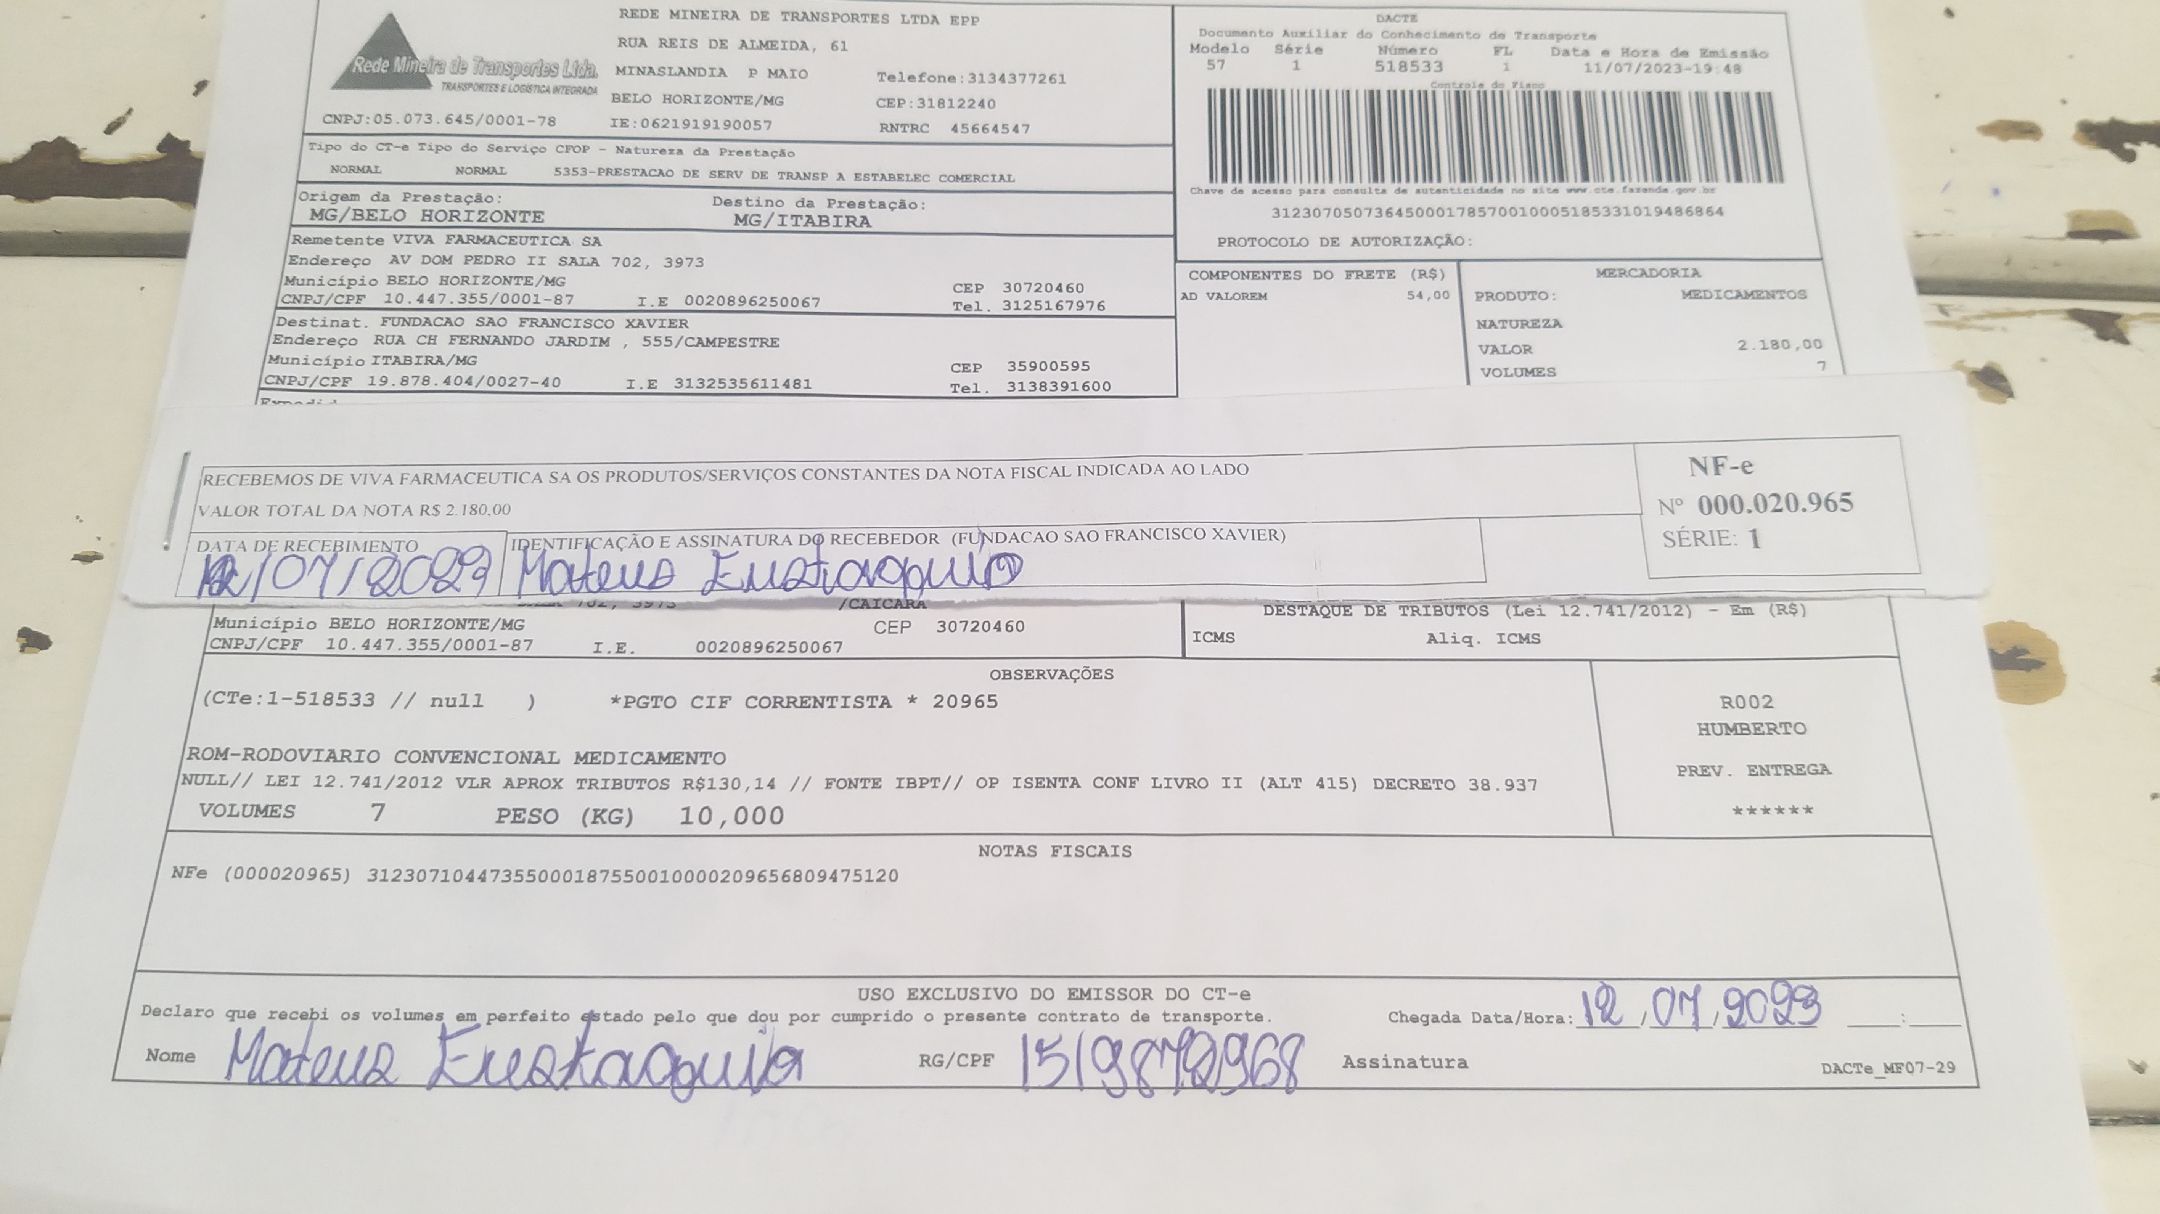 Rede Mineira de Transportes Ltda.
TRANSPORTES E LOGÍSTICA INTEGRADA
CNPJ:05.073.645/0001-78
REDE MINEIRA DE TRANSPORTES LTDA EPP
RUA REIS DE ALMEIDA, 61
MINASLANDIA P MAIO Telefone:3134377261
BELO HORIZONTE/MG CEP:31812240
IE:0621919190057 RNTRC 45664547
DACTE
Documento Auxiliar do Conhecimento de Transporte
Modelo Série Número FL Data e Hora de Emissão
57 1 518533 1 11/07/2023-19:48
Controle do Fisco
Chave de acesso para consulta de autenticidade no site www.cte.fazenda.gov.br
31230705073645000178570010005185331019486864
PROTOCOLO DE AUTORIZAÇÃO:
Tipo do CT-e Tipo do Serviço CFOP - Natureza da Prestação
NORMAL NORMAL 5353-PRESTACAO DE SERV DE TRANSP A ESTABELEC COMERCIAL
Origem da Prestação: Destino da Prestação:
MG/BELO HORIZONTE MG/ITABIRA
Remetente VIVA FARMACEUTICA SA
Endereço AV DOM PEDRO II SALA 702, 3973
Município BELO HORIZONTE/MG CEP 30720460
CNPJ/CPF 10.447.355/0001-87 I.E 0020896250067 Tel. 3125167976
Destinat. FUNDACAO SAO FRANCISCO XAVIER
Endereço RUA CH FERNANDO JARDIM , 555/CAMPESTRE
Município ITABIRA/MG CEP 35900595
CNPJ/CPF 19.878.404/0027-40 I.E 3132535611481 Tel. 3138391600
COMPONENTES DO FRETE (R$)
AD VALOREM 54,00
MERCADORIA
PRODUTO: MEDICAMENTOS
NATUREZA
VALOR 2.180,00
VOLUMES 7
RECEBEMOS DE VIVA FARMACEUTICA SA OS PRODUTOS/SERVIÇOS CONSTANTES DA NOTA FISCAL INDICADA AO LADO
VALOR TOTAL DA NOTA R$ 2.180,00
DATA DE RECEBIMENTO IDENTIFICAÇÃO E ASSINATURA DO RECEBEDOR (FUNDACAO SAO FRANCISCO XAVIER)
12/07/2023 Mateus Eustaquio
NF-e
Nº 000.020.965
SÉRIE: 1
702, 3973 /CAICARA
Município BELO HORIZONTE/MG CEP 30720460
CNPJ/CPF 10.447.355/0001-87 I.E. 0020896250067
DESTAQUE DE TRIBUTOS (Lei 12.741/2012) - Em (R$)
ICMS Aliq. ICMS
OBSERVAÇÕES
(CTe:1-518533 // null ) *PGTO CIF CORRENTISTA * 20965
ROM-RODOVIARIO CONVENCIONAL MEDICAMENTO
NULL// LEI 12.741/2012 VLR APROX TRIBUTOS R$130,14 // FONTE IBPT// OP ISENTA CONF LIVRO II (ALT 415) DECRETO 38.937
VOLUMES 7 PESO (KG) 10,000
R002
HUMBERTO
PREV. ENTREGA
******
NOTAS FISCAIS
NFe (000020965) 31230710447355000187550010000209656809475120
USO EXCLUSIVO DO EMISSOR DO CT-e
Declaro que recebi os volumes em perfeito estado pelo que dou por cumprido o presente contrato de transporte. Chegada Data/Hora: 12/07/2023 __:__
Nome Mateus Eustaquio RG/CPF 1519872968 Assinatura
DACTe_MF07-29